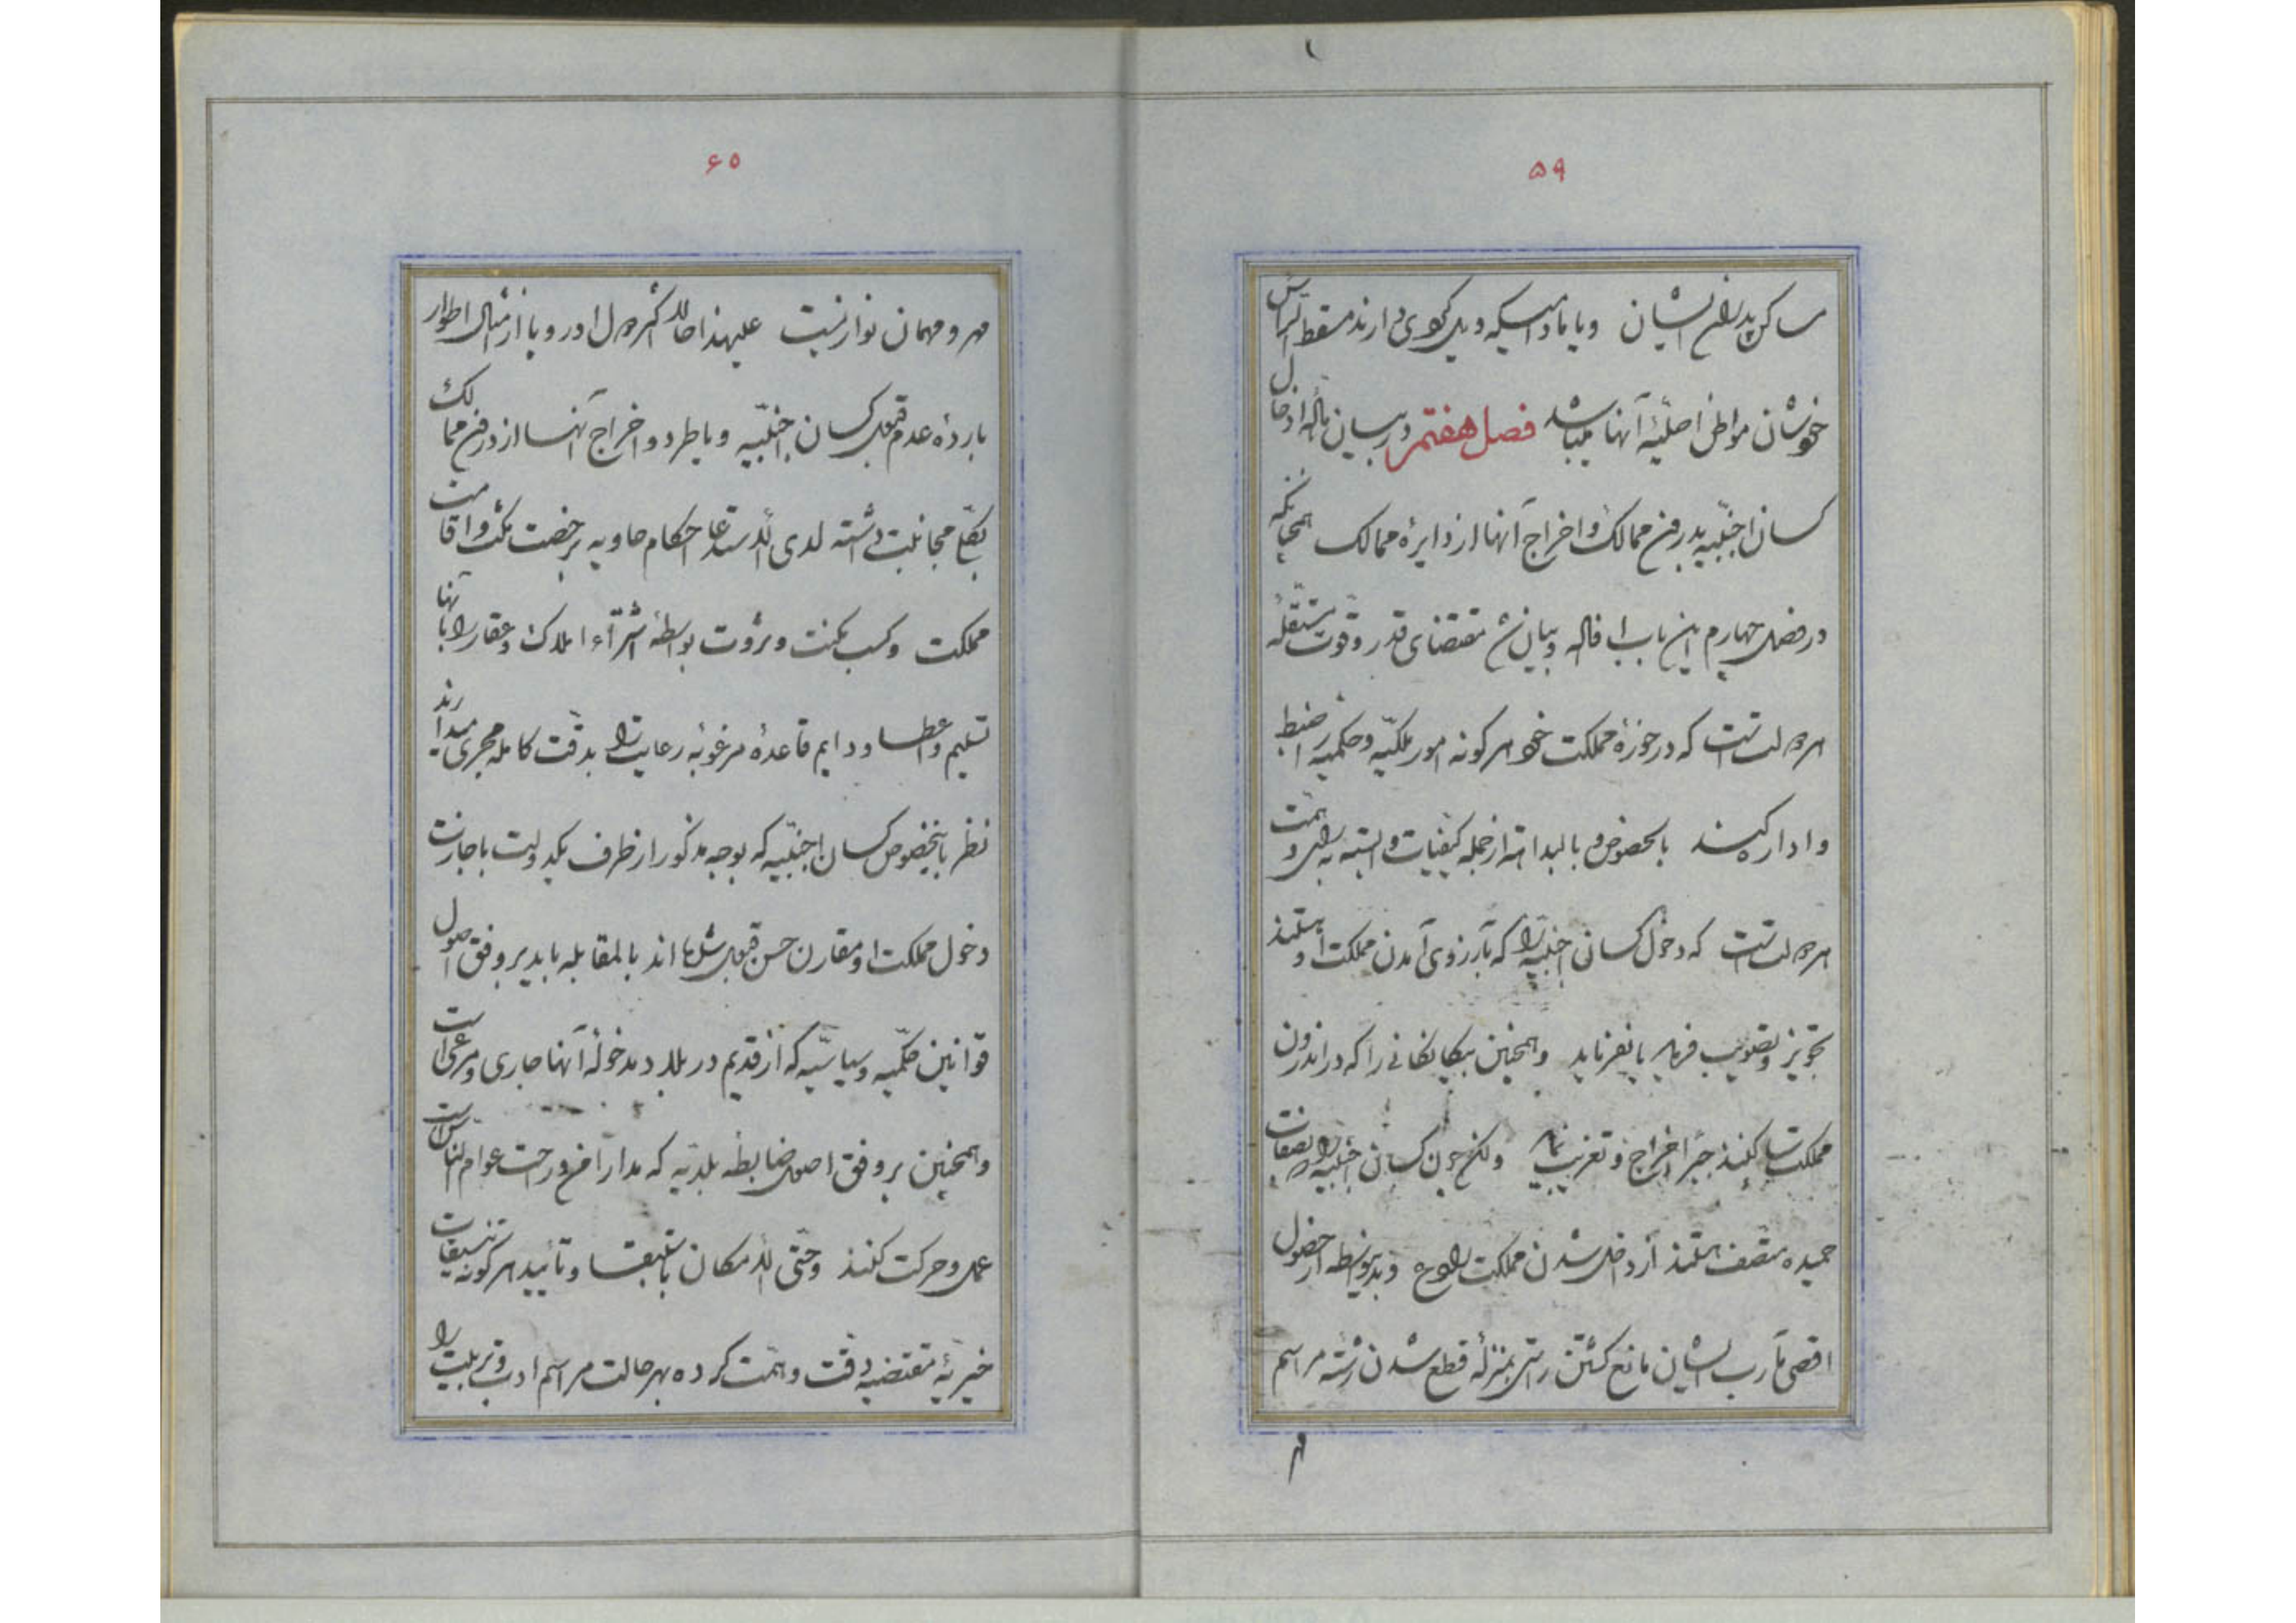 ۵۹
ساکن بدرون ایشان و یا مادامیکه دیگری دارند مسقط الرأس
خودشان مواطن اصلیهٔ آنها میباشد فصل هفتم در بیان مسألهٔ ادخال
کسان اجنبیه بدرون ممالک و اخراج آنها از دایرهٔ ممالک همچنانکه
در فصل چهارم این باب افاله و بیان شد مقتضای قدر و قوت مستقلهٔ
هر دولت است که در حوزهٔ مملکت خود هر گونه امور ملکیه و حکمیه را ضبط
و اداره کند بالخصوص و بالبداهه از جمله کیفیات وابسته به رأی و همت
هر دولت است که دخول کسان اجنبیه را که بآرزوی آمدن مملکت او هستند
تجویز و تصویب فرماید یا نفرماید و همچنین بیگانگانی را که در اندرون
مملکت ساکنند جبراً اخراج و تغریب نماید ولکن چون کسان اجنبیه را که بصفات
حمیده متصف هستند از داخل شدن مملکت و بدین واسطه از حصول
اقصی مآرب ایشان مانع گشتن راستی بمنزلهٔ قطع شدن رشتهٔ مراسم
مهر
۶۰
مهر و مهمان نوازیست علیهذا حالا اکثر دول اوروپا از امثال اطوار
بارده عدم قبول کسان اجنبیه و یا طرد و اخراج آنها از درون ممالک
بکلی مجانبت داشته لدی الاستدعا احکام حاویه بر رخصت مکث و اقامت
مملکت و کسب مکنت و ثروت بواسطهٔ اشتراء املاک و عقار را بآنها
تسلیم و اعطا و دایم قاعدهٔ مرغوبهٔ رعایت را بدقت کامله مجری میدارند
نظر باینخصوص کسان اجنبیه که بوجه مذکور از طرف یکدولت با جازت
دخول مملکت او مقارن حسن قبول شده‌اند بالمقابله باید بر وفق اصول
قوانین حکمیه و سیاسیه که از قدیم در بلاد مدخولهٔ آنها جاری و مرعی است
و همچنین بر وفق اصول ضابطه بلدیه که مدار امن و راحت عوام الناس است
عمل و حرکت کنند و حتی الامکان باستبقا و تأیید هر گونه تنسیقات
خیریهٔ مقتضیه دقت و همت کرده بهر حالت مراسم ادب و تربیت را